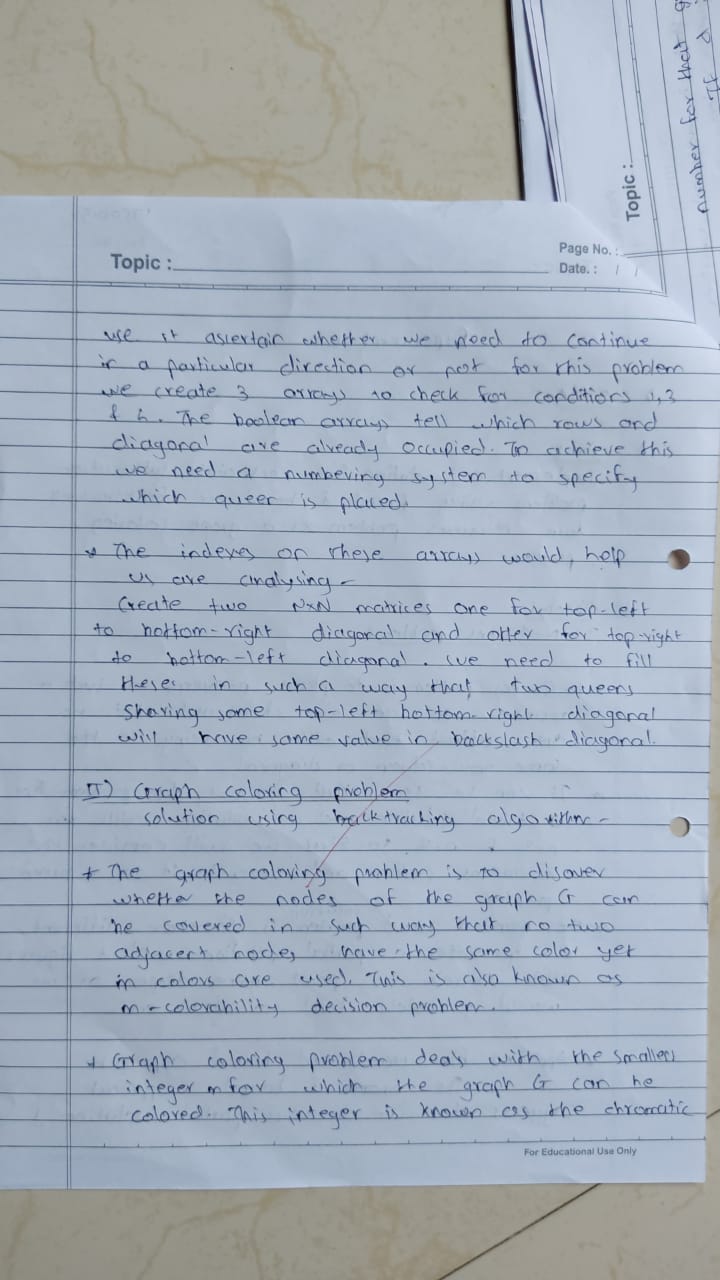 number for that
If d
Topic :
Topic :
Page No. :
Date. : / /
use it ascertain whether we need to continue
in a particular direction or not for this problem
we create 3 arrays to check for conditions 1,3
& 4. The boolean arrays tell which rows and
diagonal are already occupied. To achieve this
we need a numbering system to specify
which queen is placed.
* The indexes on these arrays would help
us are analysing -
Create two NxN matrices one for top-left
to bottom-right diagonal and other for top-right
to bottom-left diagonal. we need to fill
these in such a way that two queens
sharing same top-left bottom-right diagonal
will have same value in backslash diagonal.
II) Graph coloring problem
solution using backtracking algorithm -
* The graph coloring problem is to disover
whether the nodes of the graph G can
be covered in such way that no two
adjacent nodes have the same color yet
m colors are used. This is also known as
m-colorability decision problem.
* Graph coloring problem deals with the smallest
integer m for which the graph G can be
colored. This integer is known as the chromatic
For Educational Use Only